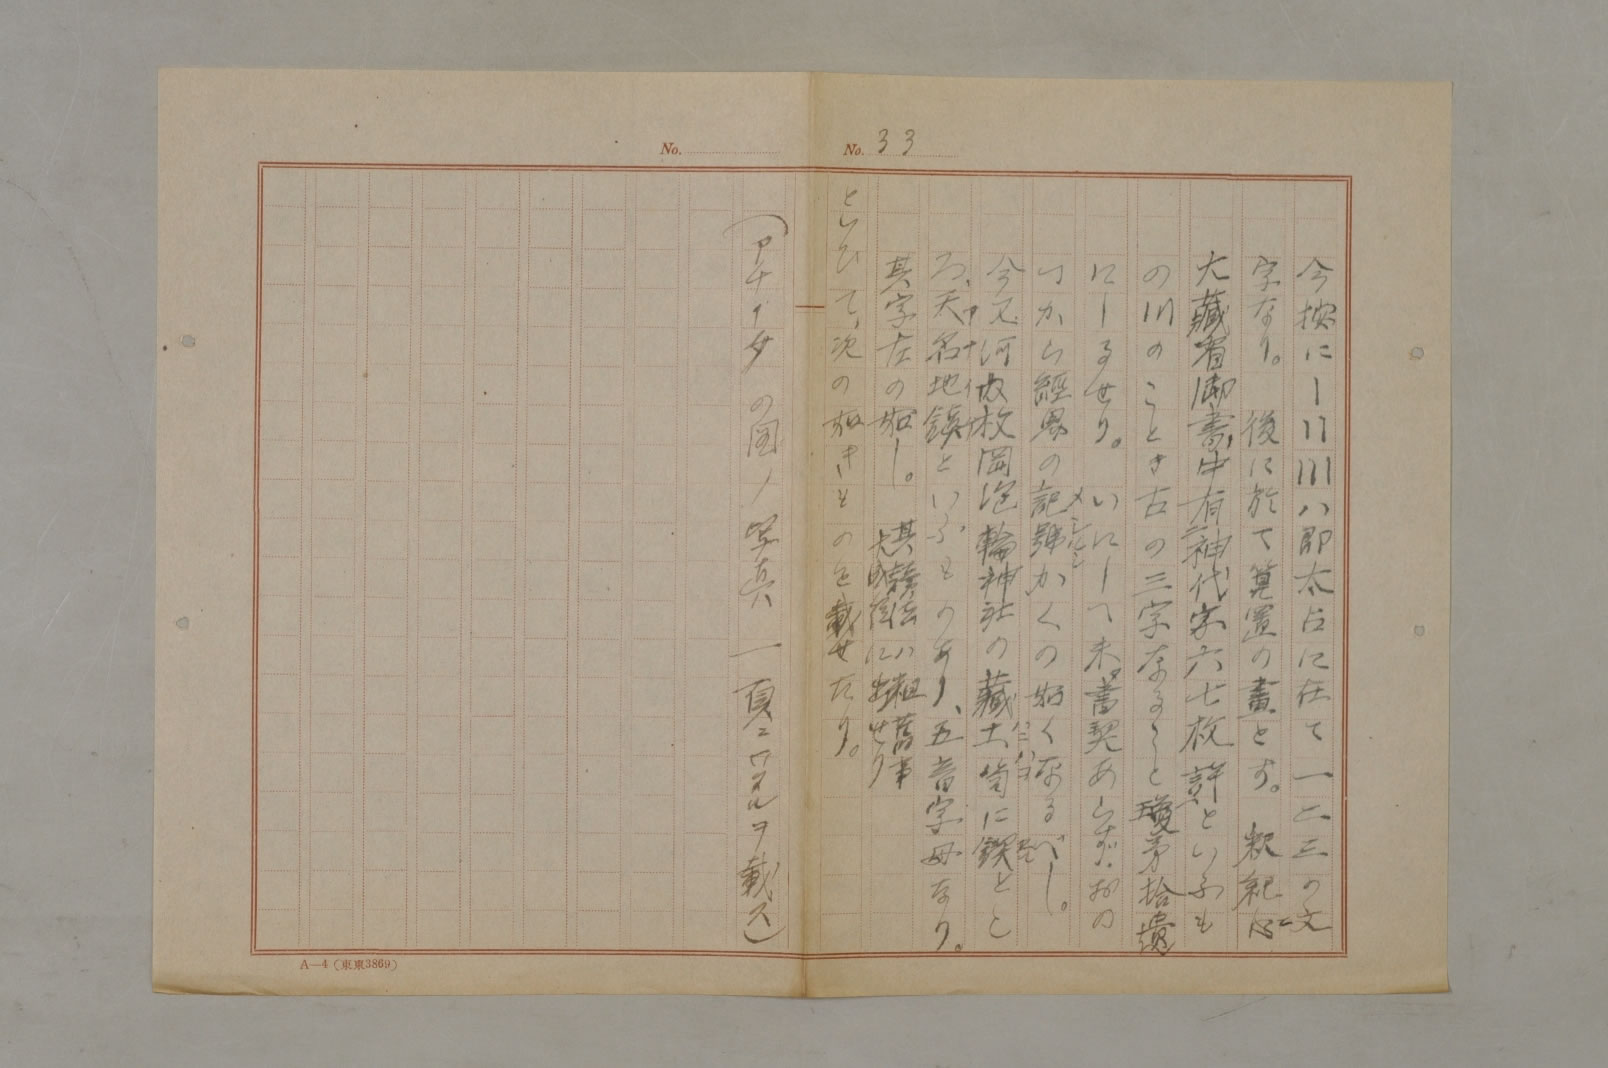 No. 33
今按にＩ 〢 〣ハ即太占に在て一二三の文
字なり。 後に於て算置の畫とす。 釈紀に
大藏省御書中有神代字六七枚許といふも
の川のことき古の三字なるらと瓊矛拾遺
にしるせり。 いにしへ未書契あらず、おの
つから經界の記號かくの如くなるべし。
メシルシ
今又河内枚岡泡輪神社の藏土笥に鏤とこ
ハニハコ
ろ、天名地鎮といふものあり、五音字母なり。
アナイチ
其字左の如し。 其韓法ハ粗舊事
大成經に出せり
といひて、次の如きものを載せたり。
(アナイチ の図ノ写真 一頁ニワタルヲ載ス)
No.
A—4 (東東3869)